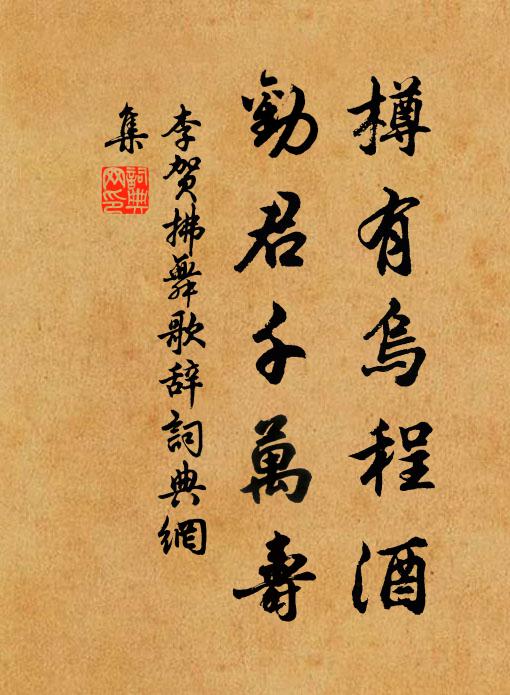 樽有烏程酒
勸君千萬壽
李賀拂舞歌辭詞典網
集
詞典網印